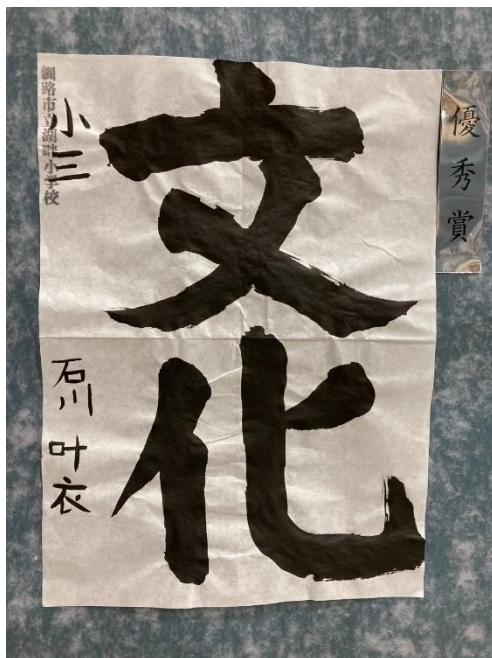 優秀賞
文化
釧路市立湖畔小学校
小三
石川叶衣